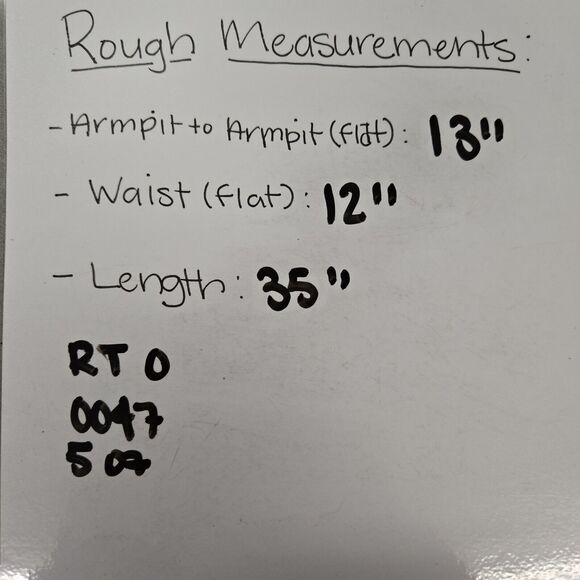 Rough Measurements:
- Armpit to Armpit (flat): 13"
- Waist (flat): 12"
- Length: 35"
RT 0
0047
5 07